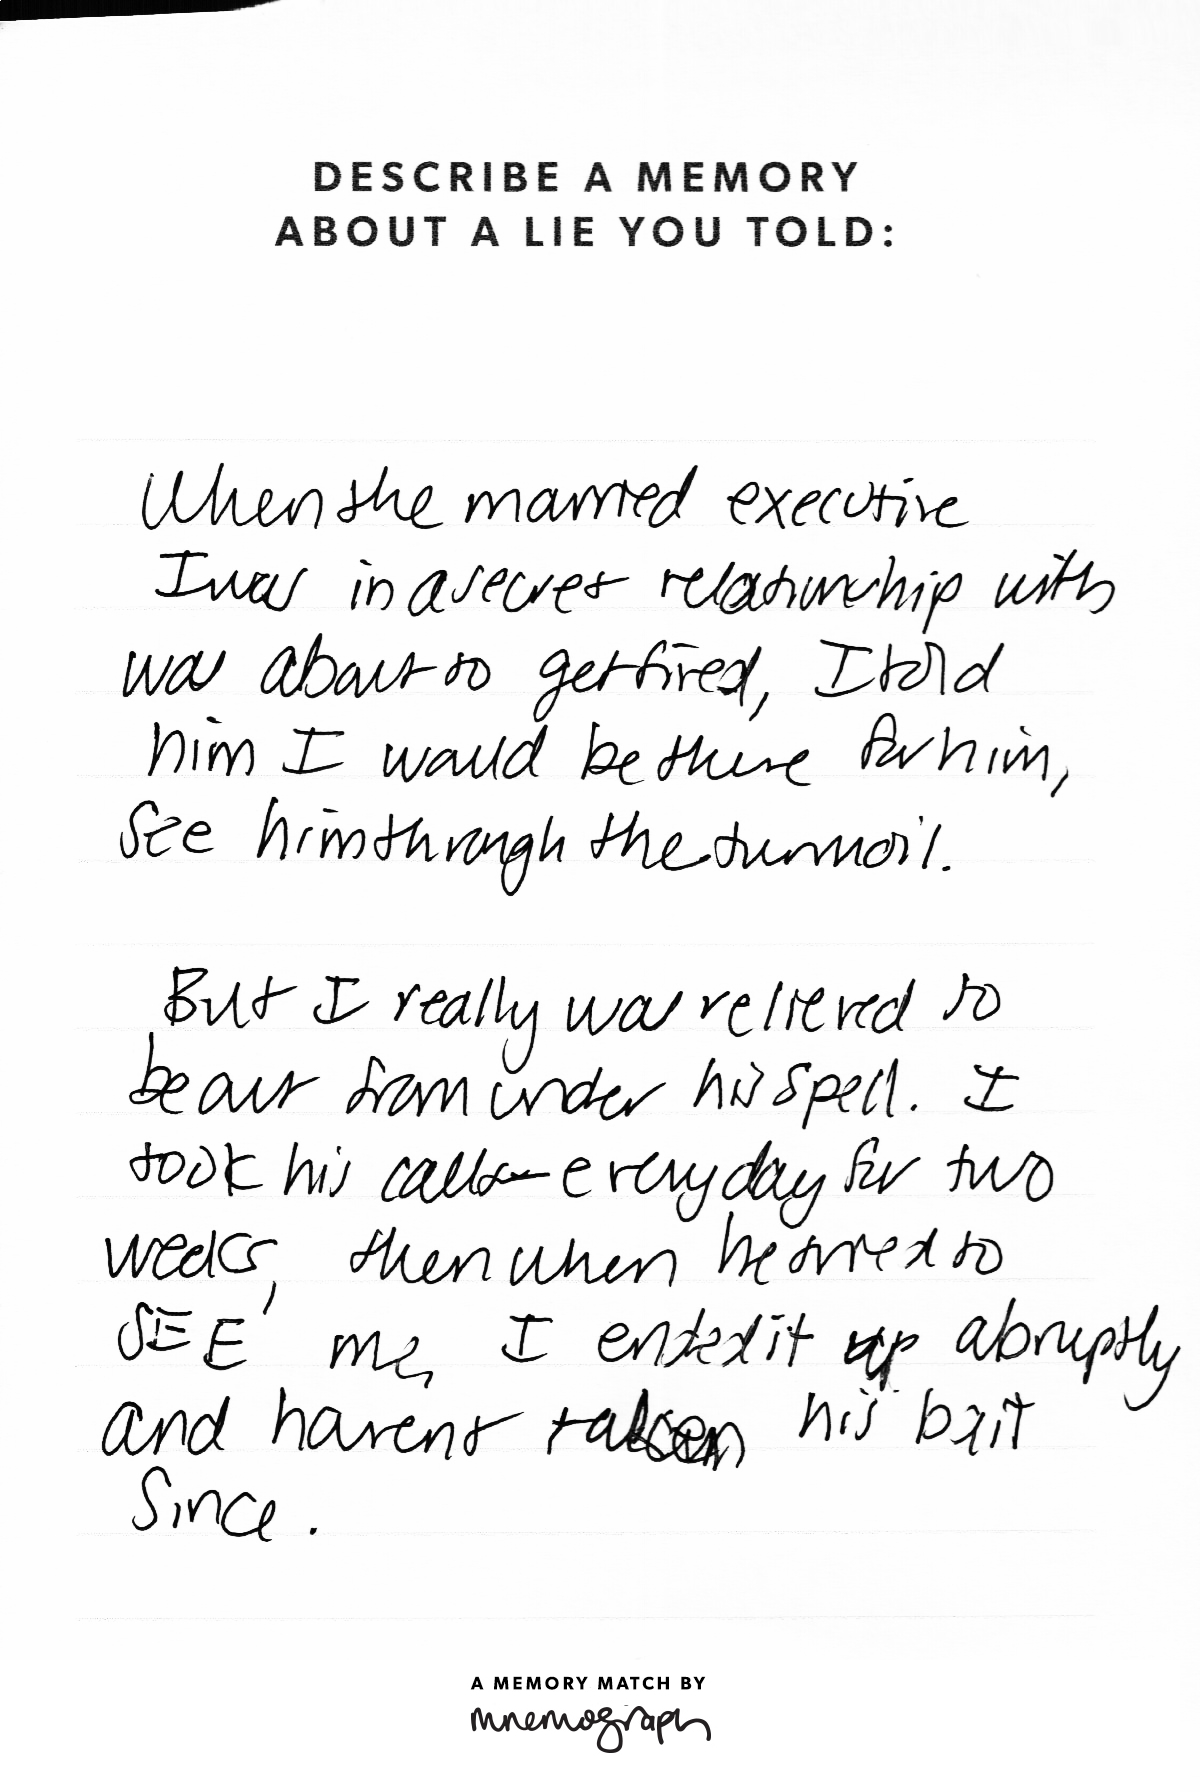 DESCRIBE A MEMORY
ABOUT A LIE YOU TOLD:
When the married executive
I was in a secret relationship with
was about to get fired, I told
him I would be there for him,
see him through the turmoil.
But I really was relieved to
be out from under his spell. I
took his calls everyday for two
weeks, then when he tried to
SEE me, I ended it up abruptly
and havent taken his bait
since.
A MEMORY MATCH BY
mnemograph